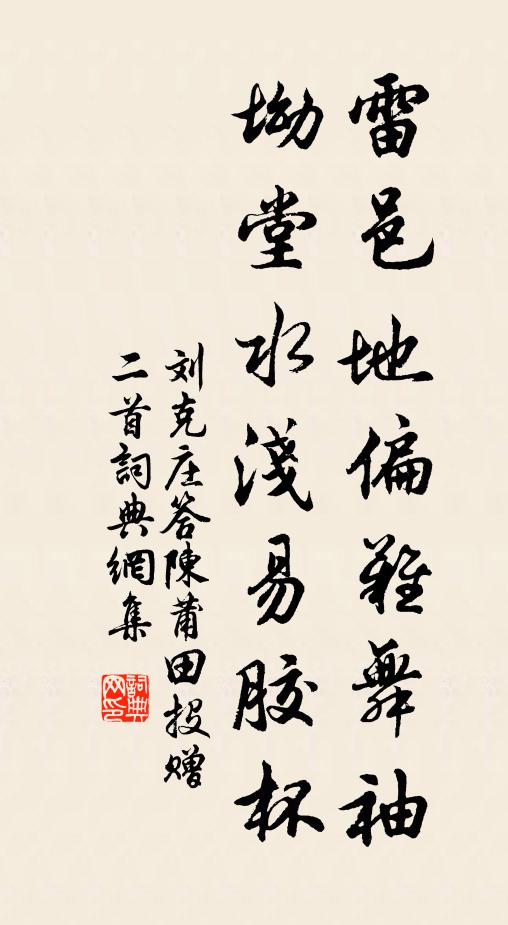 雷邑地偏難舞袖
坳堂水淺易胶杯
刘克庄答陳莆田投赠
二首詞典網集
詞典
网印